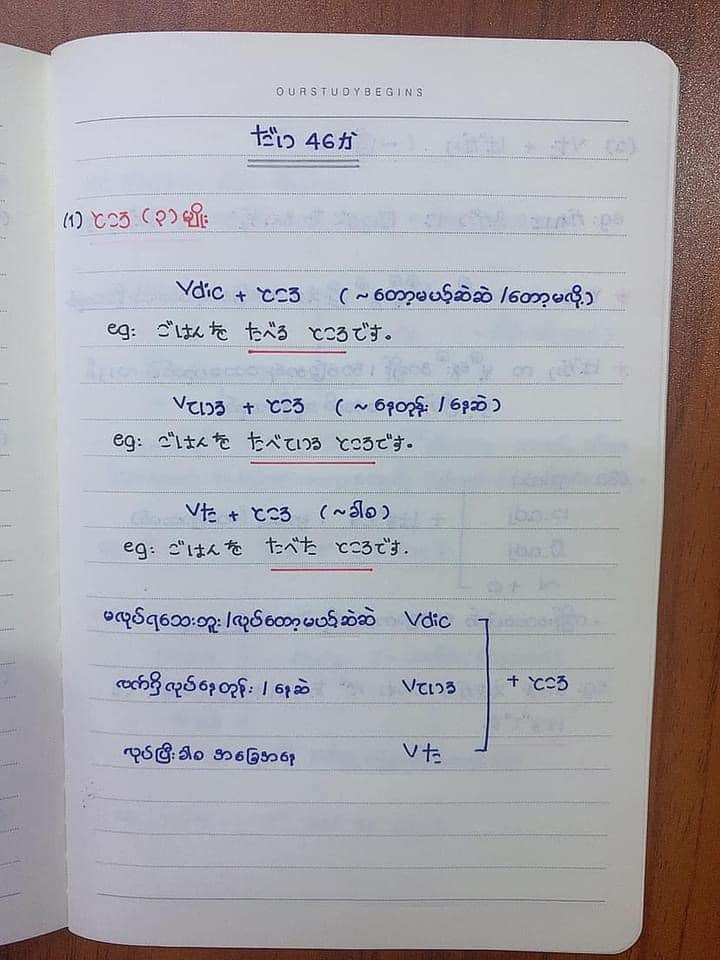 OURSTUDYBEGINS
だい 46か
(1) ところ (၃) မျိုး
Vdic + ところ (~တော့မယ့်ဆဲဆဲ /တော့မလို့)
eg: ごはんを たべる ところです。
Vている + ところ (~နေတုန်း /နေဆဲ)
eg: ごはんを たべている ところです。
Vた + ところ (~ခါစ)
eg: ごはんを たべた ところです.
မလုပ်ရသေးဘူး/လုပ်တော့မယ့်ဆဲဆဲ Vdic
လက်ရှိလုပ်နေတုန်း / နေဆဲ Vている + ところ
လုပ်ပြီးခါစ အခြေအနေ Vた